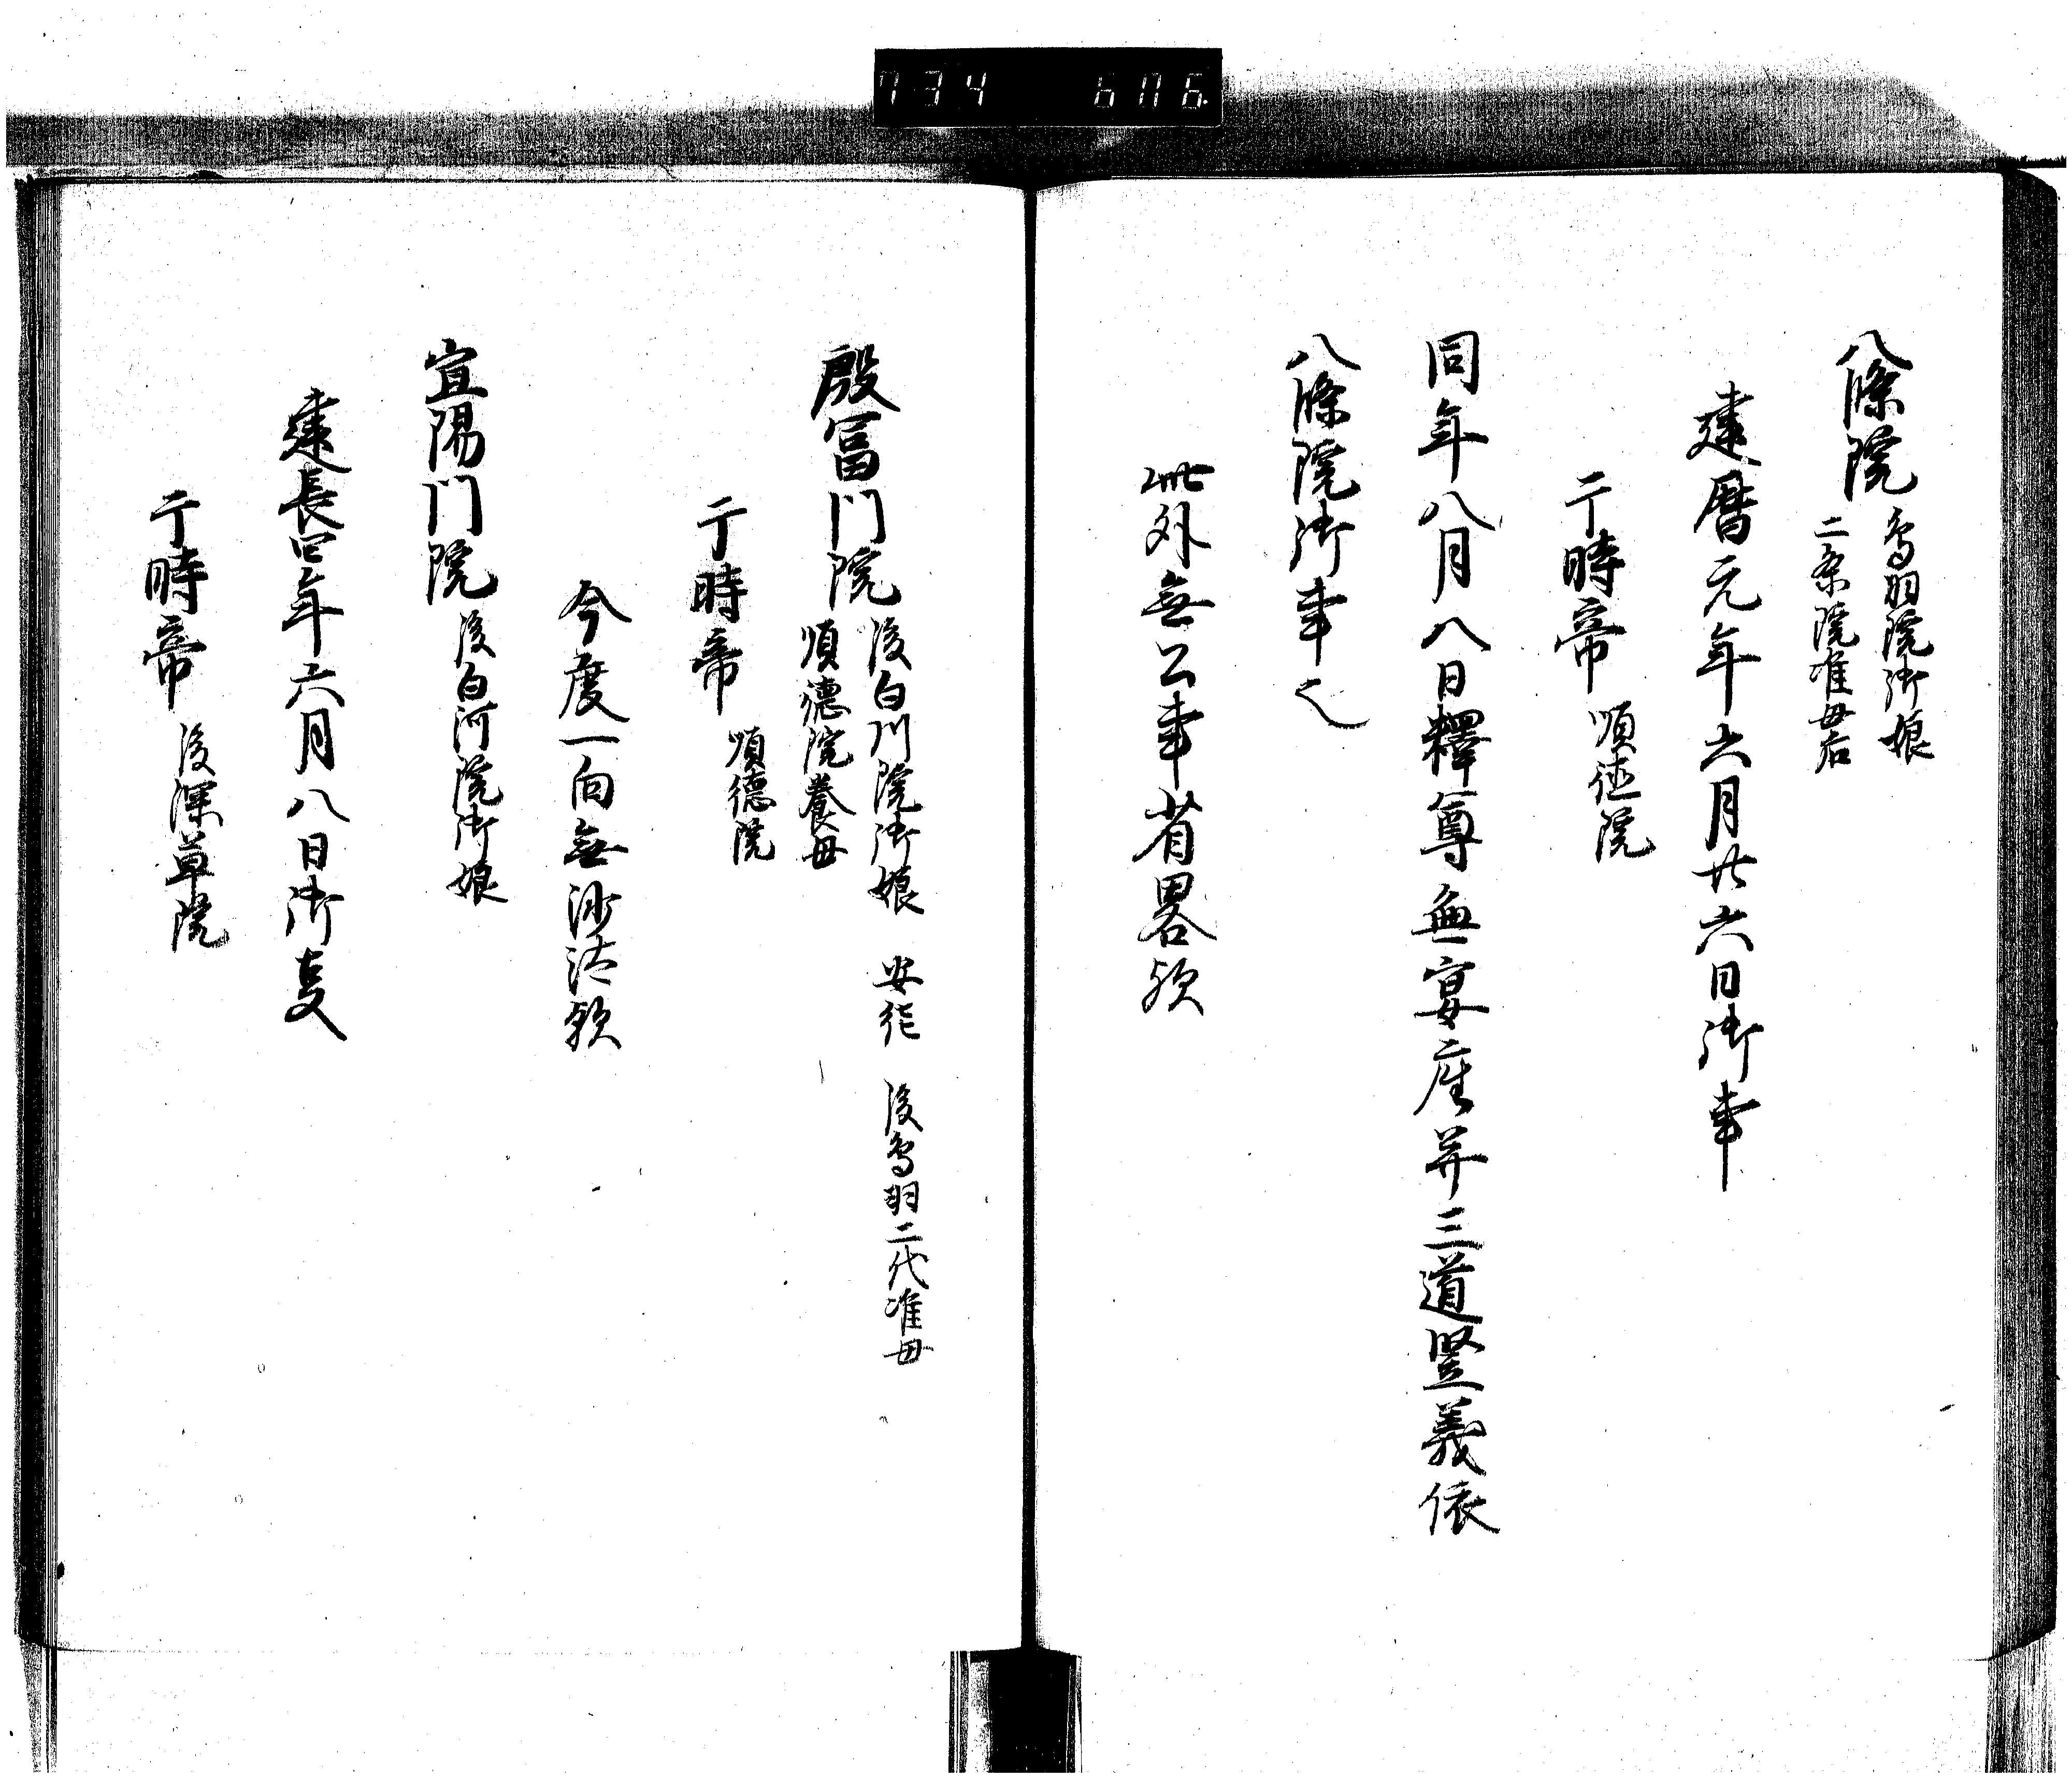 734 6076
八條院 鳥羽院御娘
二条院准母后
建暦元年六月廿六日御事
于時帝 順徳院
同年八月八日釋尊無宴座并三道竪義依
八條院御事也
此外無公事省畧歟
殷冨門院 後白川院御娘 安徳 後鳥羽二代准母
順徳院養母
于時帝 順徳院
今度一向無沙汰歟
宣陽門院 後白河院御娘
建長四年六月八日御事
于時帝 後深草院